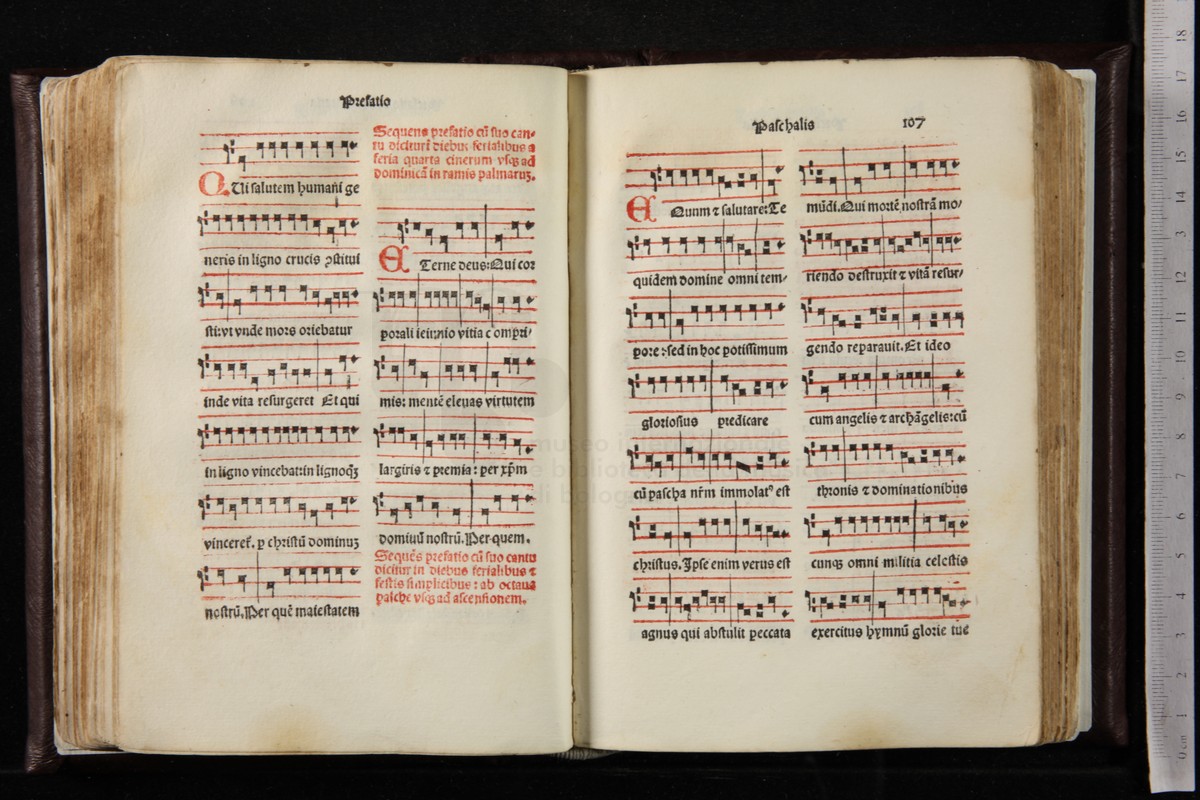 Prefatio
QUi salutem humani ge
neris in ligno crucis ꝯstitui
sti:vt vnde mors oriebatur
inde vita resurgeret Et qui
in ligno vincebat:in lignoqꝫ
vinceret̄. p christū dominuꝫ
nostrū.Per quē maiestatem
Sequens prefatio cū suo can-
tu dicitur ī diebus ferialibus a
feria quarta cinerum vsqꝫ ad
dominicā in ramis palmaruꝫ.
ETerne deus:Qui cor
porali ieiunio vitia compri/
mis: mentē eleuas virtutem
largiris ⁊ premia: per xp̄m
dominū nostrū.Per quem.
Sequēs prefatio cū suo cantu
dicitur in diebus ferialibus ⁊
festis simplicibus: ab octaua
pasche vsqꝫ ad ascensionem.
Paschalis 107
EQuum ⁊ salutare:Te
quidem domine omni tem/
pore:sed in hoc potissimum
gloriosius predicare
cū pascha nr̄m immolatꝰ est
christus.Ipse enim verus est
agnus qui abstulit peccata
mūdi.Qui mortē nostrā mo/
riendo destruxit ⁊ vitā resur/
gendo reparauit.Et ideo
cum angelis ⁊ archāgelis:cū
thronis ⁊ dominationibus
cunqꝫ omni militia celestis
exercitus hymnū glorie tue
museo internazionale
e biblioteca della musica
di bologna
18
17
16
15
14
13
12
11
10
9
8
7
6
5
4
3
2
1
0 cm